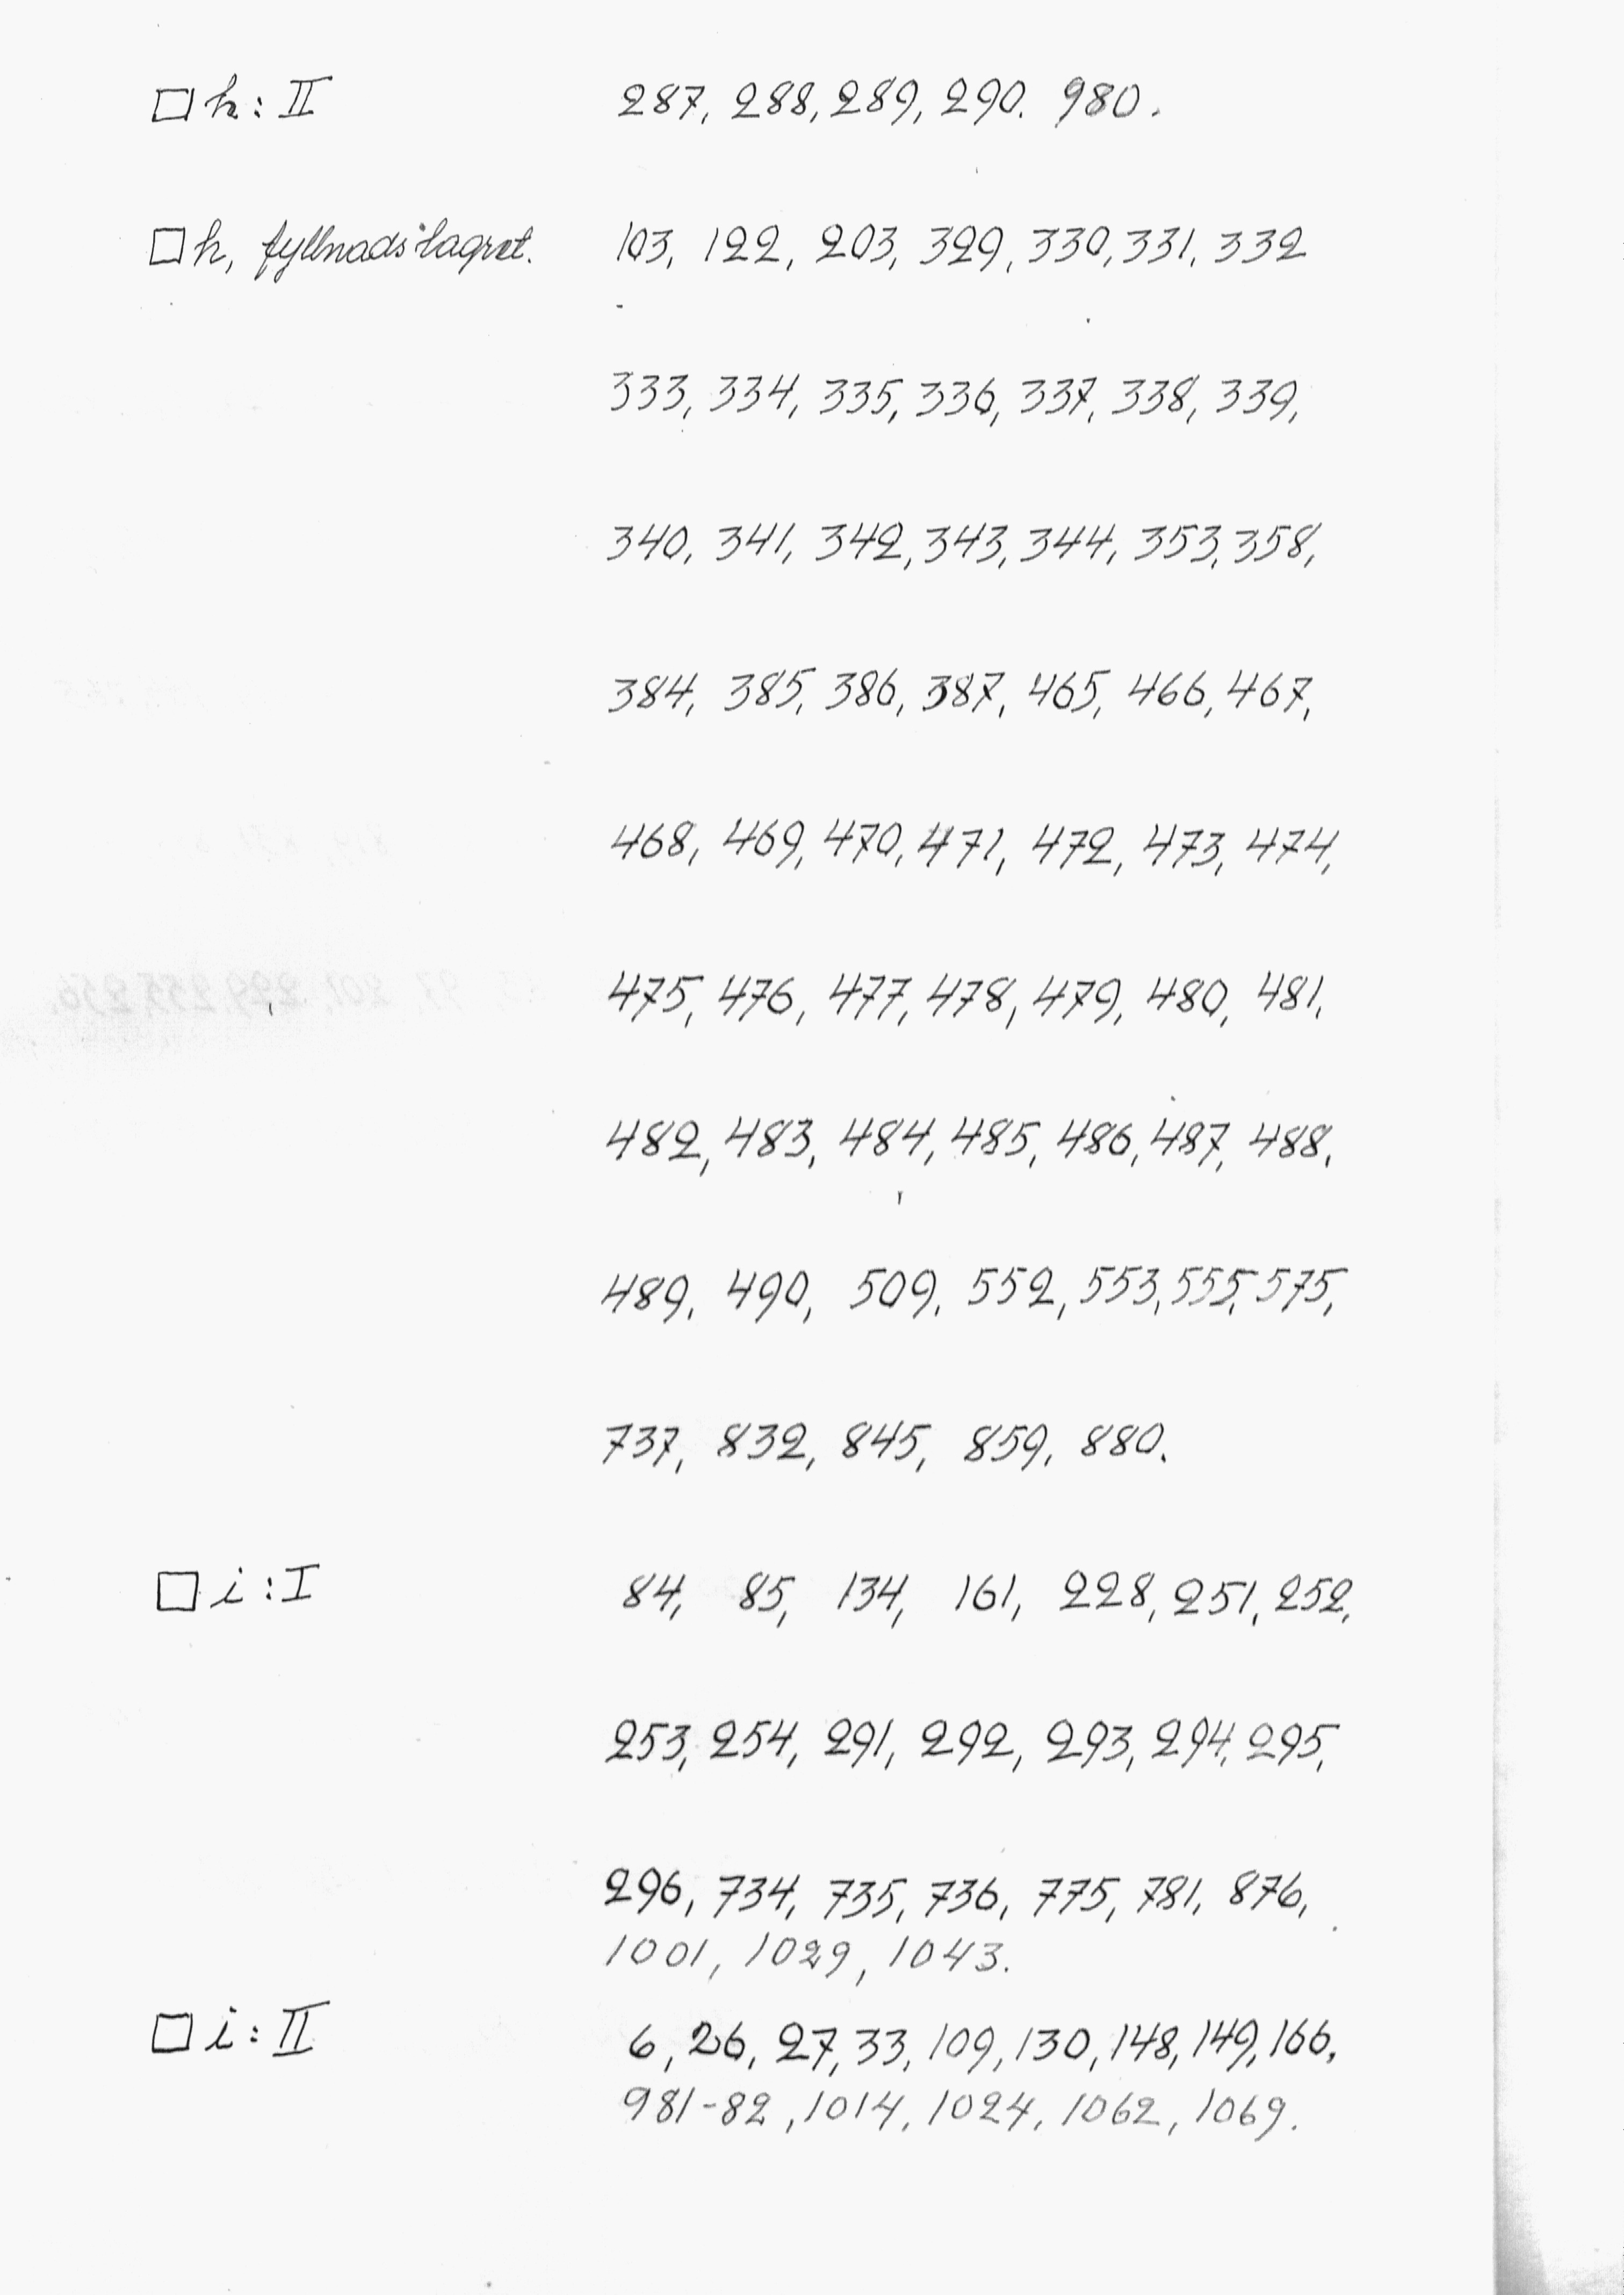 □ h : II 287, 288, 289, 290. 980.
□ h, fyllnadslagret. 103, 122, 203, 329, 330, 331, 332
333, 334, 335, 336, 337, 338, 339,
340, 341, 342, 343, 344, 353, 358,
384, 385, 386, 387, 465, 466, 467,
468, 469, 470, 471, 472, 473, 474,
475, 476, 477, 478, 479, 480, 481,
482, 483, 484, 485, 486, 487, 488,
489, 490, 509, 552, 553, 555, 575,
737, 832, 845, 859, 880.
□ i : I 84, 85, 134, 161, 228, 251, 252,
253, 254, 291, 292, 293, 294, 295,
296, 734, 735, 736, 775, 781, 876,
1001, 1029, 1043.
□ i : II 6, 26, 27, 33, 109, 130, 148, 149, 166,
981-82, 1014, 1024, 1062, 1069.